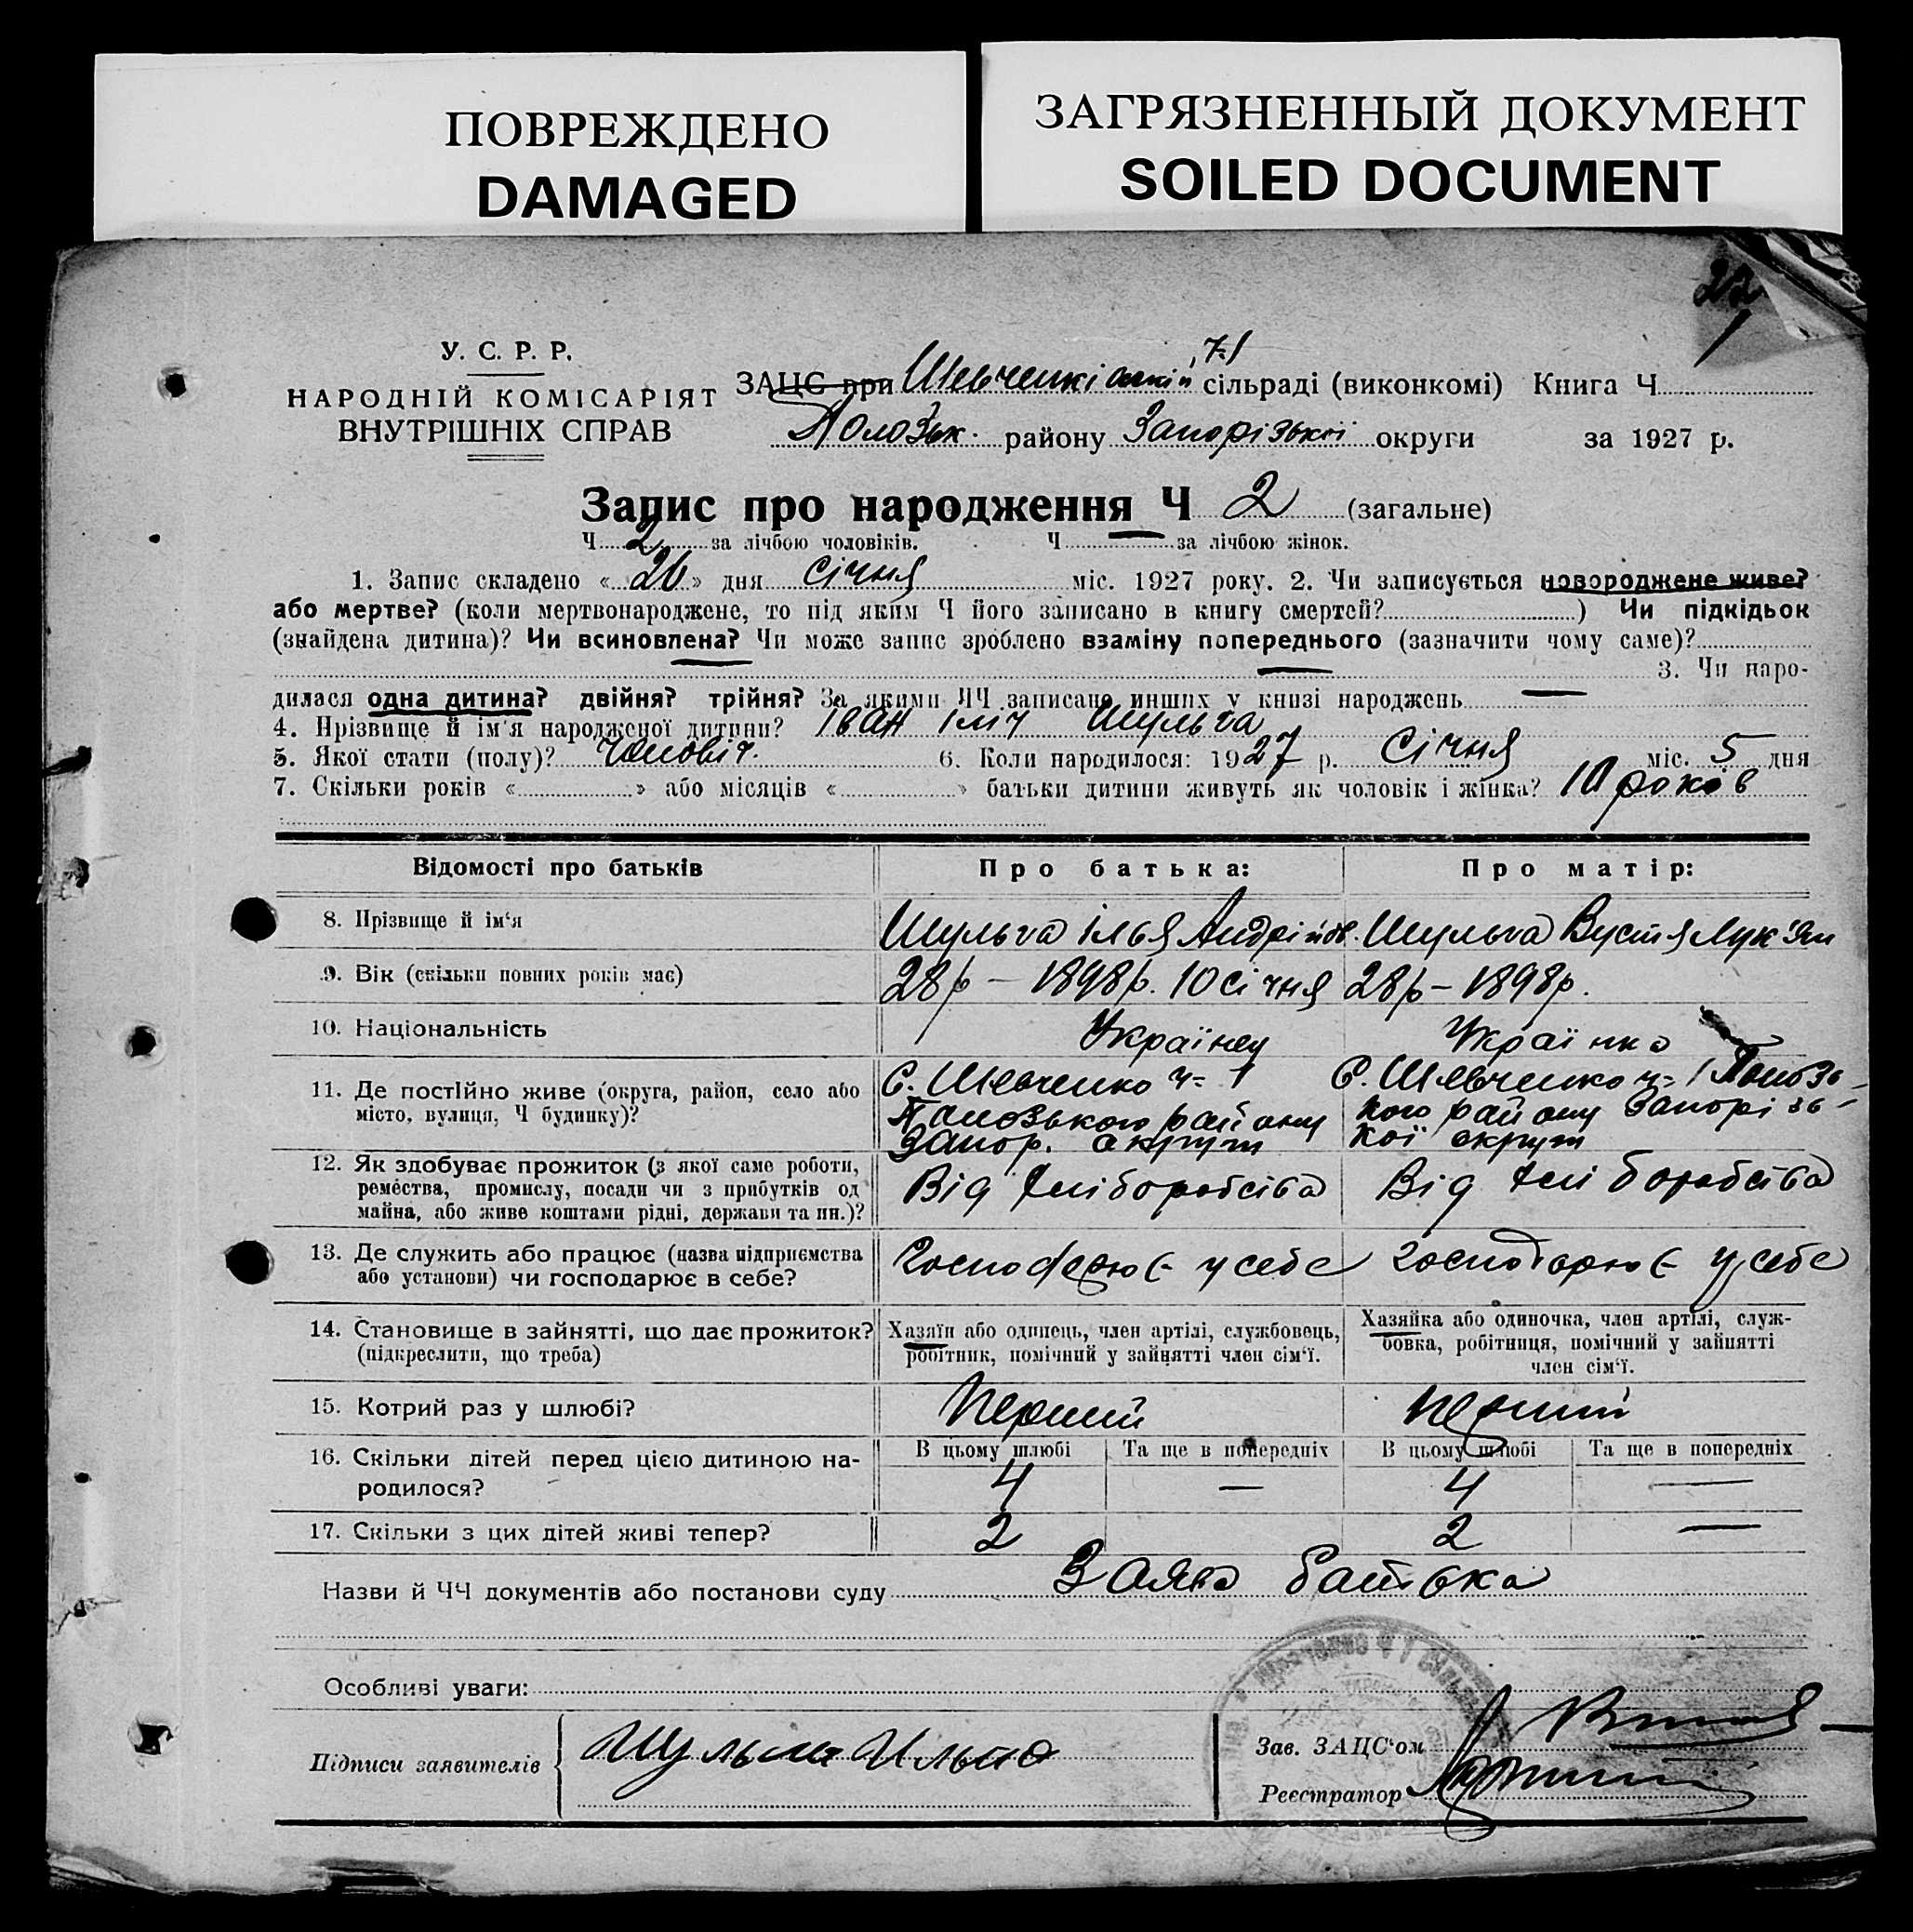 ПОВРЕЖДЕНО
DAMAGED
ЗАГРЯЗНЕННЫЙ ДОКУМЕНТ
SOILED DOCUMENT
22
У. С. Р. Р.
НАРОДНІЙ КОМІСАРІЯТ
ВНУТРІШНІХ СПРАВ
ч-1
ЗАЦС при Шевченківський сільраді (виконкомі) Книга Ч
Полозьк. району Запорізької округи за 1927 р.
Запис про народження Ч 2 (загальне)
Ч 2 за лічбою чоловіків. Ч — за лічбою жінок.
1. Запис складено «20» дня Січня міс. 1927 року. 2. Чи записується новороджене живе?
або мертве? (коли мертвонароджене, то під яким Ч його записано в книгу смертей? ) Чи підкідьок
(знайдена дитина)? Чи всиновлена? Чи може запис зроблено взаміну попереднього (зазначити чому саме)?
— — 3. Чи наро-
дилася одна дитина? двійня? трійня? За якими ЧЧ записано инших у книзі народжень —
4. Прізвище й ім'я народженої дитини? Іван Ілліч Шульга
5. Якої стати (полу)? Чоловіч. 6. Коли народилося: 1927 р. Січня міс. 5 дня
7. Скільки років « » або місяців « » батьки дитини живуть як чоловік і жінка? 10 років
Відомості про батьків Про батька: Про матір:
8. Прізвище й ім'я Шульга Ілья Андрійов. Шульга Вустя Лук'ян
9. Вік (скільки повних років має) 28 р – 1898 р. 10 січня 28 р – 1898 р.
10. Національність Українец Українка
11. Де постійно живе (округа, район, село або
місто, вулиця, Ч будинку)?
С. Шевченко ч-1
Полозького району
Запор. округи
С. Шевченко ч-1 Полозь-
кого району Запорізь-
кої округи
12. Як здобуває прожиток (з якої саме роботи,
ремества, промислу, посади чи з прибутків од
майна, або живе коштами рідні, держави та ин.)?
Від хліборобства Від хліборобства
13. Де служить або працює (назва підприємства
або установи) чи господарює в себе?
Господарює у себе Господарює у себе
14. Становище в зайнятті, що дає прожиток?
(підкреслити, що треба)
Хазяїн або одинець, член артілі, службовець,
робітник, помічний у зайнятті член сім'ї.
Хазяйка або одиночка, член артілі, служ-
бовка, робітниця, помічний у зайнятті
член сім'ї.
15. Котрий раз у шлюбі? Перший Перший
16. Скільки дітей перед цією дитиною на-
родилося?
В цьому шлюбі Та ще в попередніх В цьому шлюбі Та ще в попередніх
4 — 4 —
17. Скільки з цих дітей живі тепер? 2 2 —
Назви й ЧЧ документів або постанови суду Заява батька
Особливі уваги:
Підписи заявителів Шульга Илья
Зав. ЗАЦС'ом
Реєстратор